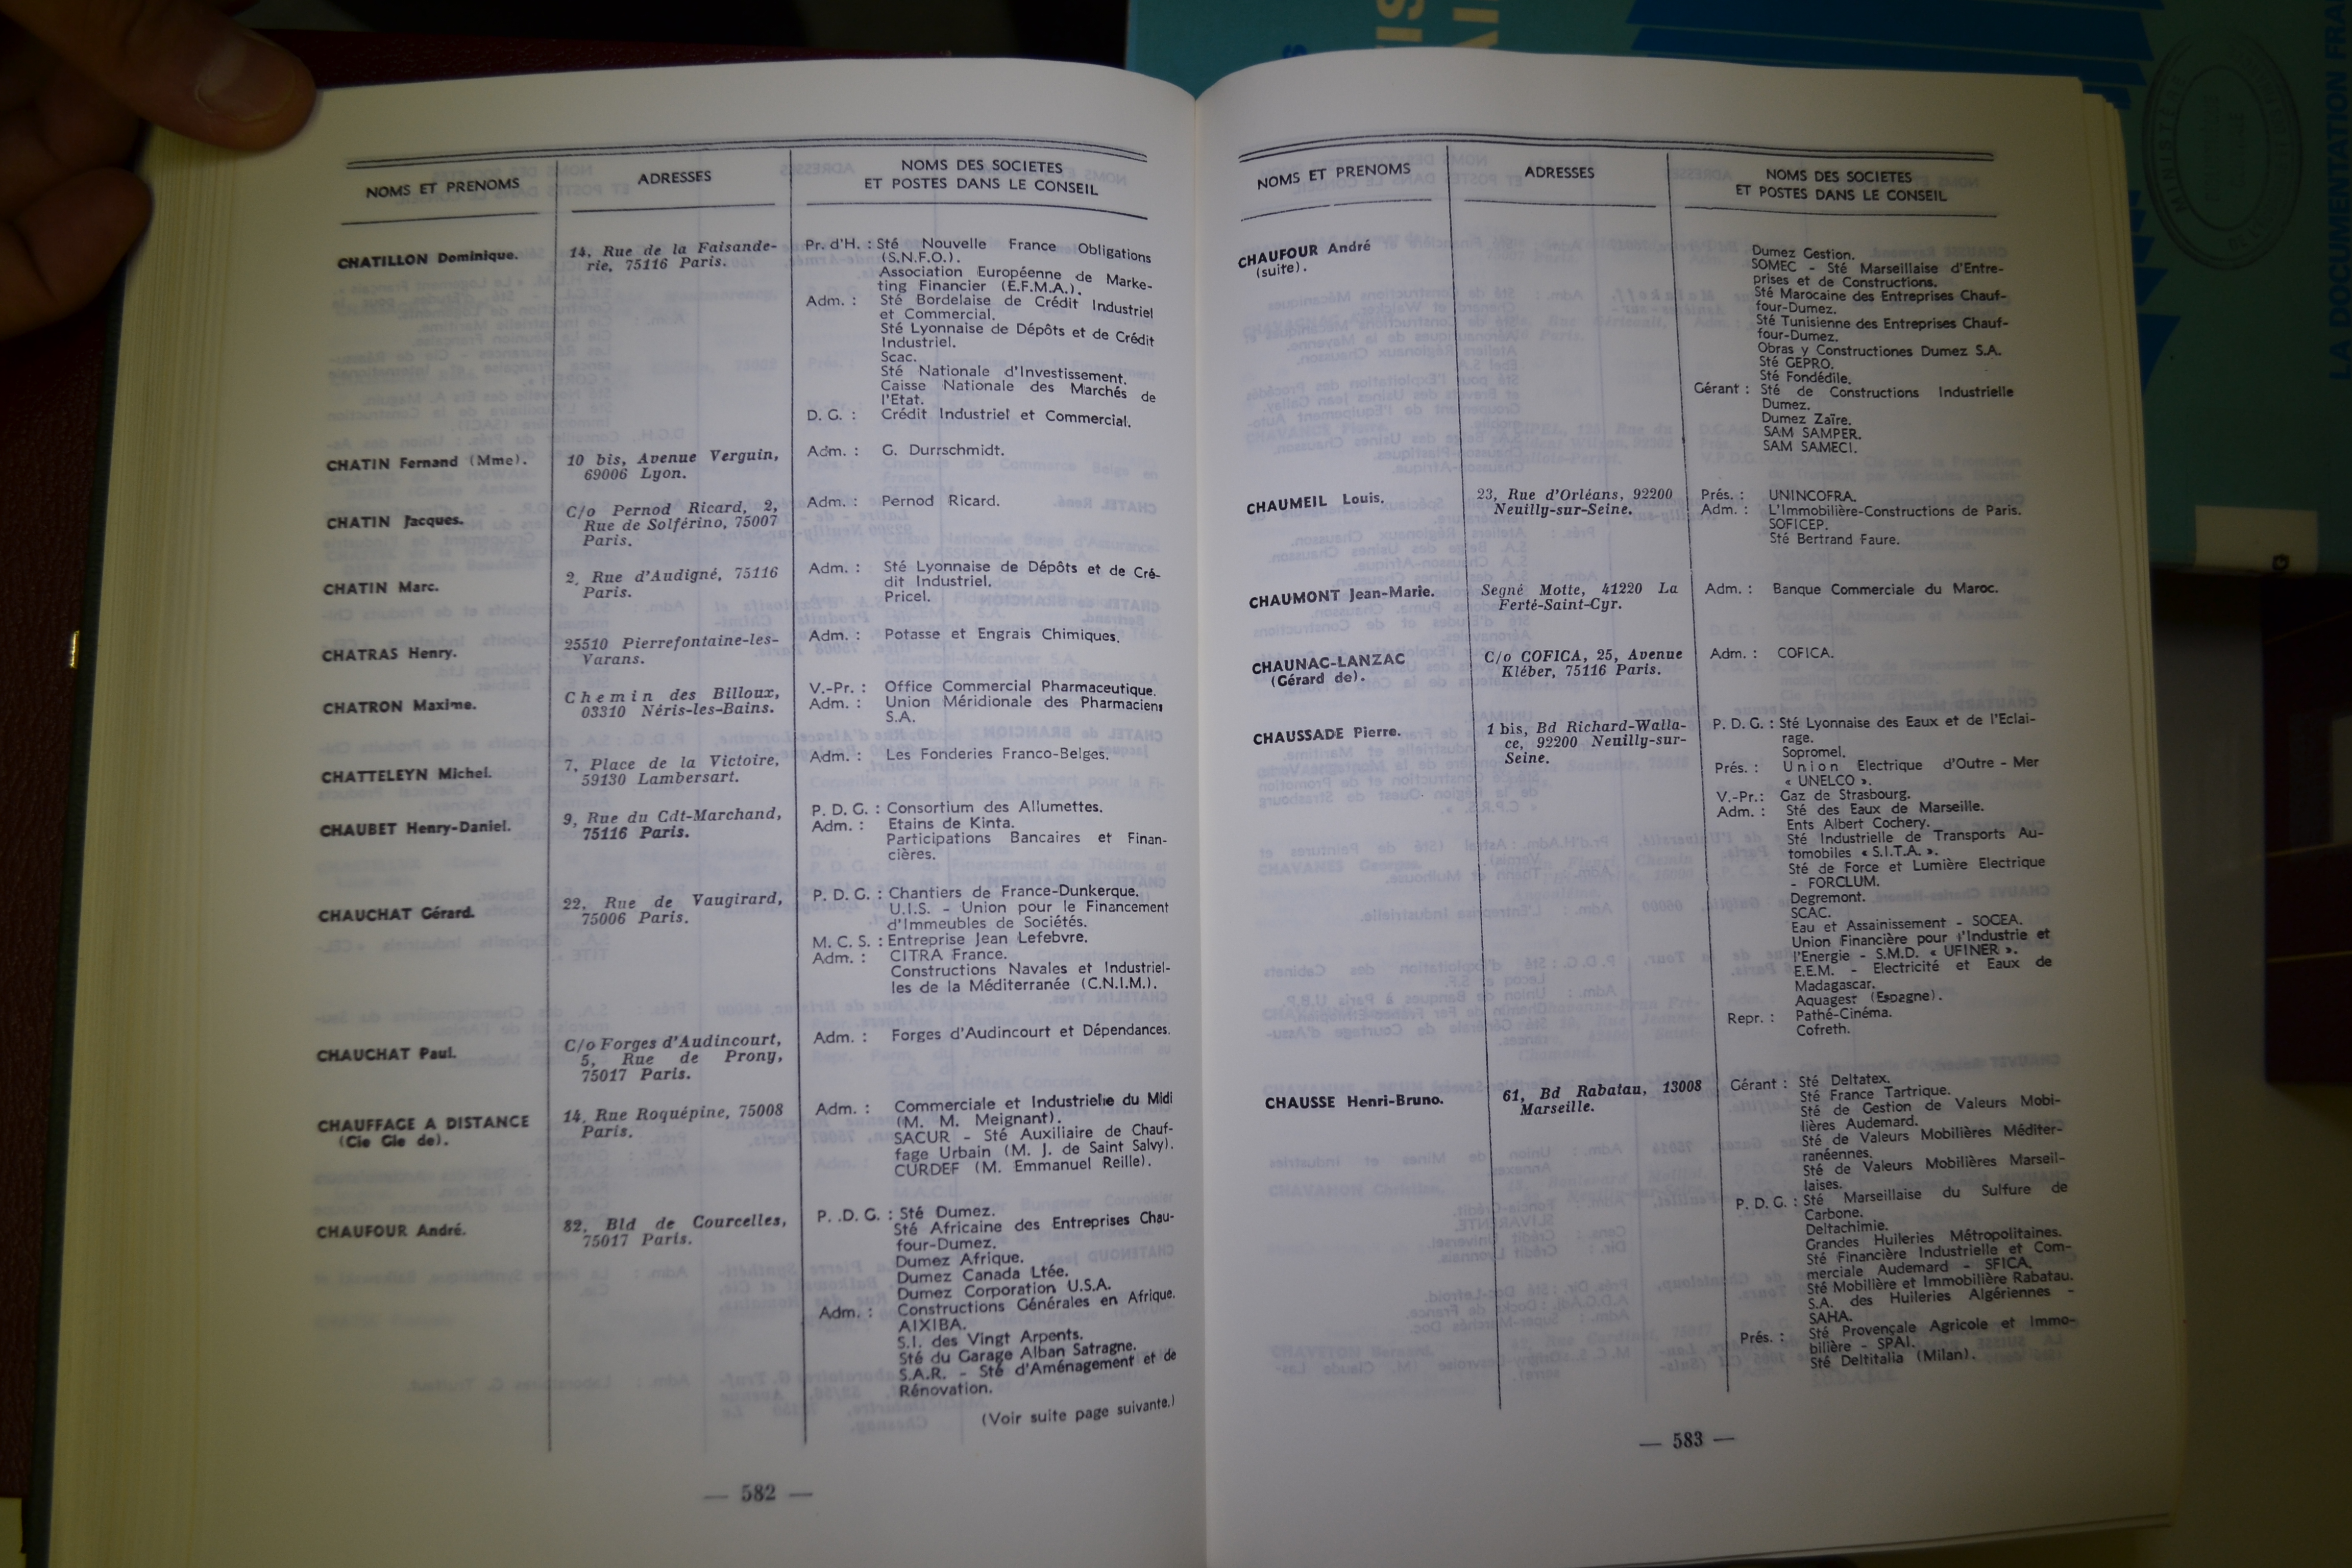 NOMS ET PRENOMS
ADRESSES
NOMS DES SOCIETES
ET POSTES DANS LE CONSEIL
CHATILLON Dominique.
14, Rue de la Faisande-
rie, 75116 Paris.
Pr. d'H. : Sté Nouvelle France Obligations
(S.N.F.O.).
Association Européenne de Marke-
ting Financier (E.F.M.A.).
Adm. : Sté Bordelaise de Crédit Industriel
et Commercial.
Sté Lyonnaise de Dépôts et de Crédit
Industriel.
Scac.
Sté Nationale d'Investissement.
Caisse Nationale des Marchés de
l'Etat.
D. G. : Crédit Industriel et Commercial.
CHATIN Fernand (Mme).
10 bis, Avenue Verguin,
69006 Lyon.
Adm. : G. Durrschmidt.
CHATIN Jacques.
C/o Pernod Ricard, 2,
Rue de Solférino, 75007
Paris.
Adm. : Pernod Ricard.
CHATIN Marc.
2, Rue d'Audigné, 75116
Paris.
Adm. : Sté Lyonnaise de Dépôts et de Cré-
dit Industriel.
Pricel.
CHATRAS Henry.
25510 Pierrefontaine-les-
Varans.
Adm. : Potasse et Engrais Chimiques.
CHATRON Maxime.
Chemin des Billoux,
03310 Néris-les-Bains.
V.-Pr. : Office Commercial Pharmaceutique.
Adm. : Union Méridionale des Pharmaciens
S.A.
CHATTELEYN Michel.
7, Place de la Victoire,
59130 Lambersart.
Adm. : Les Fonderies Franco-Belges.
CHAUBET Henry-Daniel.
9, Rue du Cdt-Marchand,
75116 Paris.
P. D. G. : Consortium des Allumettes.
Adm. : Etains de Kinta.
Participations Bancaires et Finan-
cières.
CHAUCHAT Gérard.
22, Rue de Vaugirard,
75006 Paris.
P. D. G. : Chantiers de France-Dunkerque.
U.I.S. - Union pour le Financement
d'Immeubles de Sociétés.
M. C. S. : Entreprise Jean Lefebvre.
Adm. : CITRA France.
Constructions Navales et Industriel-
les de la Méditerranée (C.N.I.M.).
CHAUCHAT Paul.
C/o Forges d'Audincourt,
5, Rue de Prony,
75017 Paris.
Adm. : Forges d'Audincourt et Dépendances.
CHAUFFAGE A DISTANCE
(Cie Gle de).
14, Rue Roquépine, 75008
Paris.
Adm. : Commerciale et Industrielle du Midi
(M. M. Meignant).
SACUR - Sté Auxiliaire de Chauf-
fage Urbain (M. J. de Saint Salvy).
CURDEF (M. Emmanuel Reille).
CHAUFOUR André.
82, Bld de Courcelles,
75017 Paris.
P. .D. G. : Sté Dumez.
Sté Africaine des Entreprises Chau-
four-Dumez.
Dumez Afrique.
Dumez Canada Ltée.
Dumez Corporation U.S.A.
Adm. : Constructions Générales en Afrique.
AIXIBA.
S.I. des Vingt Arpents.
Sté du Garage Alban Satragne.
S.A.R. - Sté d'Aménagement et de
Rénovation.
(Voir suite page suivante.)
— 582 —
NOMS ET PRENOMS
ADRESSES
NOMS DES SOCIETES
ET POSTES DANS LE CONSEIL
CHAUFOUR André
(suite).
Dumez Gestion.
SOMEC - Sté Marseillaise d'Entre-
prises et de Constructions.
Sté Marocaine des Entreprises Chauf-
four-Dumez.
Sté Tunisienne des Entreprises Chauf-
four-Dumez.
Obras y Constructiones Dumez S.A.
Sté GEPRO.
Sté Fondédile.
Gérant : Sté de Constructions Industrielle
Dumez.
Dumez Zaïre.
SAM SAMPER.
SAM SAMECI.
CHAUMEIL Louis.
23, Rue d'Orléans, 92200
Neuilly-sur-Seine.
Prés. : UNINCOFRA.
Adm. : L'Immobilière-Constructions de Paris.
SOFICEP.
Sté Bertrand Faure.
CHAUMONT Jean-Marie.
Segné Motte, 41220 La
Ferté-Saint-Cyr.
Adm. : Banque Commerciale du Maroc.
CHAUNAC-LANZAC
(Gérard de).
C/o COFICA, 25, Avenue
Kléber, 75116 Paris.
Adm. : COFICA.
CHAUSSADE Pierre.
1 bis, Bd Richard-Walla-
ce, 92200 Neuilly-sur-
Seine.
P. D. G. : Sté Lyonnaise des Eaux et de l'Eclai-
rage.
Sopromel.
Prés. : Union Electrique d'Outre - Mer
« UNELCO ».
V.-Pr.: Gaz de Strasbourg.
Adm. : Sté des Eaux de Marseille.
Ents Albert Cochery.
Sté Industrielle de Transports Au-
tomobiles « S.I.T.A. ».
Sté de Force et Lumière Electrique
- FORCLUM.
Degremont.
SCAC.
Eau et Assainissement - SOCEA.
Union Financière pour l'Industrie et
l'Energie - S.M.D. « UFINER ».
E.E.M. - Electricité et Eaux de
Madagascar.
Aquagest (Espagne).
Repr. : Pathé-Cinéma.
Cofreth.
CHAUSSE Henri-Bruno.
61, Bd Rabatau, 13008
Marseille.
Gérant : Sté Deltatex.
Sté France Tartrique.
Sté de Gestion de Valeurs Mobi-
lières Audemard.
Sté de Valeurs Mobilières Méditer-
ranéennes.
Sté de Valeurs Mobilières Marseil-
laises.
P. D. G. : Sté Marseillaise du Sulfure de
Carbone.
Deltachimie.
Grandes Huileries Métropolitaines.
Sté Financière Industrielle et Com-
merciale Audemard - SFICA.
Sté Mobilière et Immobilière Rabatau.
S.A. des Huileries Algériennes -
SAHA.
Prés. : Sté Provençale Agricole et Immo-
bilière - SPAI.
Sté Deltitalia (Milan).
— 583 —
LA DOCUMENTATION FRA
MINISTÈRE